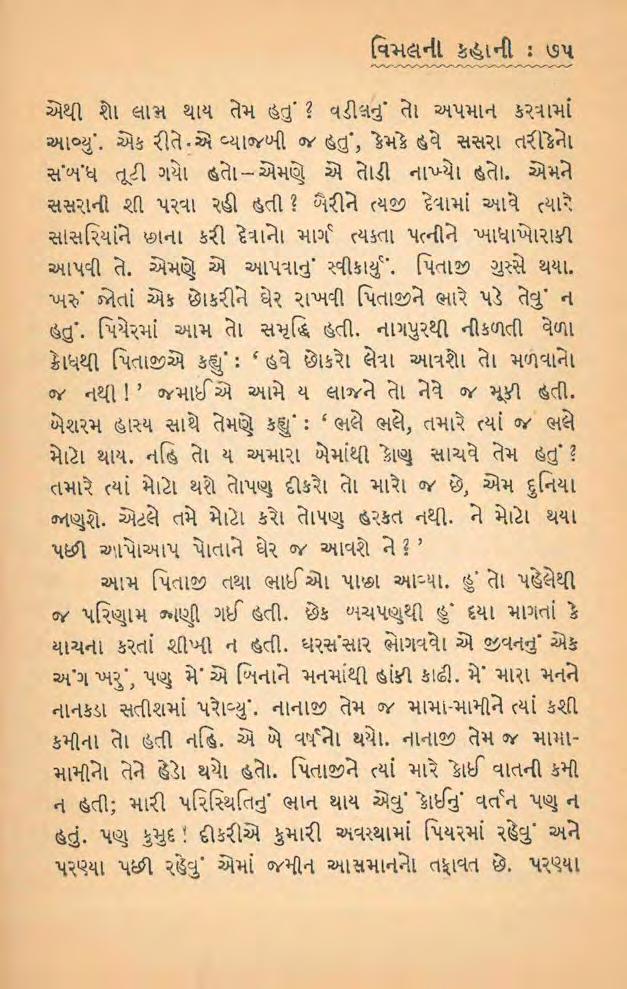 વિમલની કહાની : ૭૫
એથી શો લાભ થાય તેમ હતું ? વડીલનું તો અપમાન કરવામાં
આવ્યું. એક રીતે એ વ્યાજબી જ હતું, કેમકે હવે સસરા તરીકેનો
સંબંધ તૂટી ગયો હતો–એમણે એ તોડી નાખ્યો હતો. એમને
સસરાની શી પરવા રહી હતી ? બૈરીને ત્યજી દેવામાં આવે ત્યારે
સાસરિયાંને છાના કરી દેવાનો માર્ગ ત્યક્તા પત્નીને ખાધાખોરાકી
આપવી તે. એમણે એ આપવાનું સ્વીકાર્યું. પિતાજી ગુસ્સે થયા.
ખરું જોતાં એક છોકરીને ઘેર રાખવી પિતાજીને ભારે પડે તેવું ન
હતું. પિયેરમાં આમ તો સમૃદ્ધિ હતી. નાગપુરથી નીકળતી વેળા
ક્રોધથી પિતાજીએ કહ્યું : ‘ હવે છોકરો લેવા આવશો તો મળવાનો
જ નથી ! ’ જમાઈએ આમે ય લાજને તો નેવે જ મૂકી હતી.
બેશરમ હાસ્ય સાથે તેમણે કહ્યું : ‘ ભલે ભલે, તમારે ત્યાં જ ભલે
મોટો થાય. નહિ તો ય અમારા બેમાંથી કોણ સાચવે તેમ હતું ?
તમારે ત્યાં મોટો થશે તોપણ દીકરો તો મારો જ છે, એમ દુનિયા
જાણશે. એટલે તમે મોટો કરો તોપણ હરકત નથી. ને મોટો થયા
પછી આપોઆપ પોતાને ઘેર જ આવશે ને ? ’
આમ પિતાજી તથા ભાઈઓ પાછા આવ્યા. હું તો પહેલેથી
જ પરિણામ જાણી ગઈ હતી. છેક બચપણથી હું દયા માગતાં કે
યાચના કરતાં શીખી ન હતી. ઘરસંસાર ભોગવવો એ જીવનનું એક
અંગ ખરું, પણ મેં એ બિનાને મનમાંથી હાંકી કાઢી. મેં મારા મનને
નાનકડા સતીશમાં પરોવ્યું. નાનાજી તેમ જ મામા-મામીને ત્યાં કશી
કમીના તો હતી નહિ. એ બે વર્ષનો થયો. નાનાજી તેમ જ મામા-
મામીનો તેને હેડો થયો હતો. પિતાજીને ત્યાં મારે કોઈ વાતની કમી
ન હતી; મારી પરિસ્થિતિનું ભાન થાય એવું કોઈનું વર્તન પણ ન
હતું. પણ કુમુદ ! દીકરીએ કુમારી અવસ્થામાં પિયરમાં રહેવું અને
પરણ્યા પછી રહેવું એમાં જમીન આસમાનનો તફાવત છે. પરણ્યા